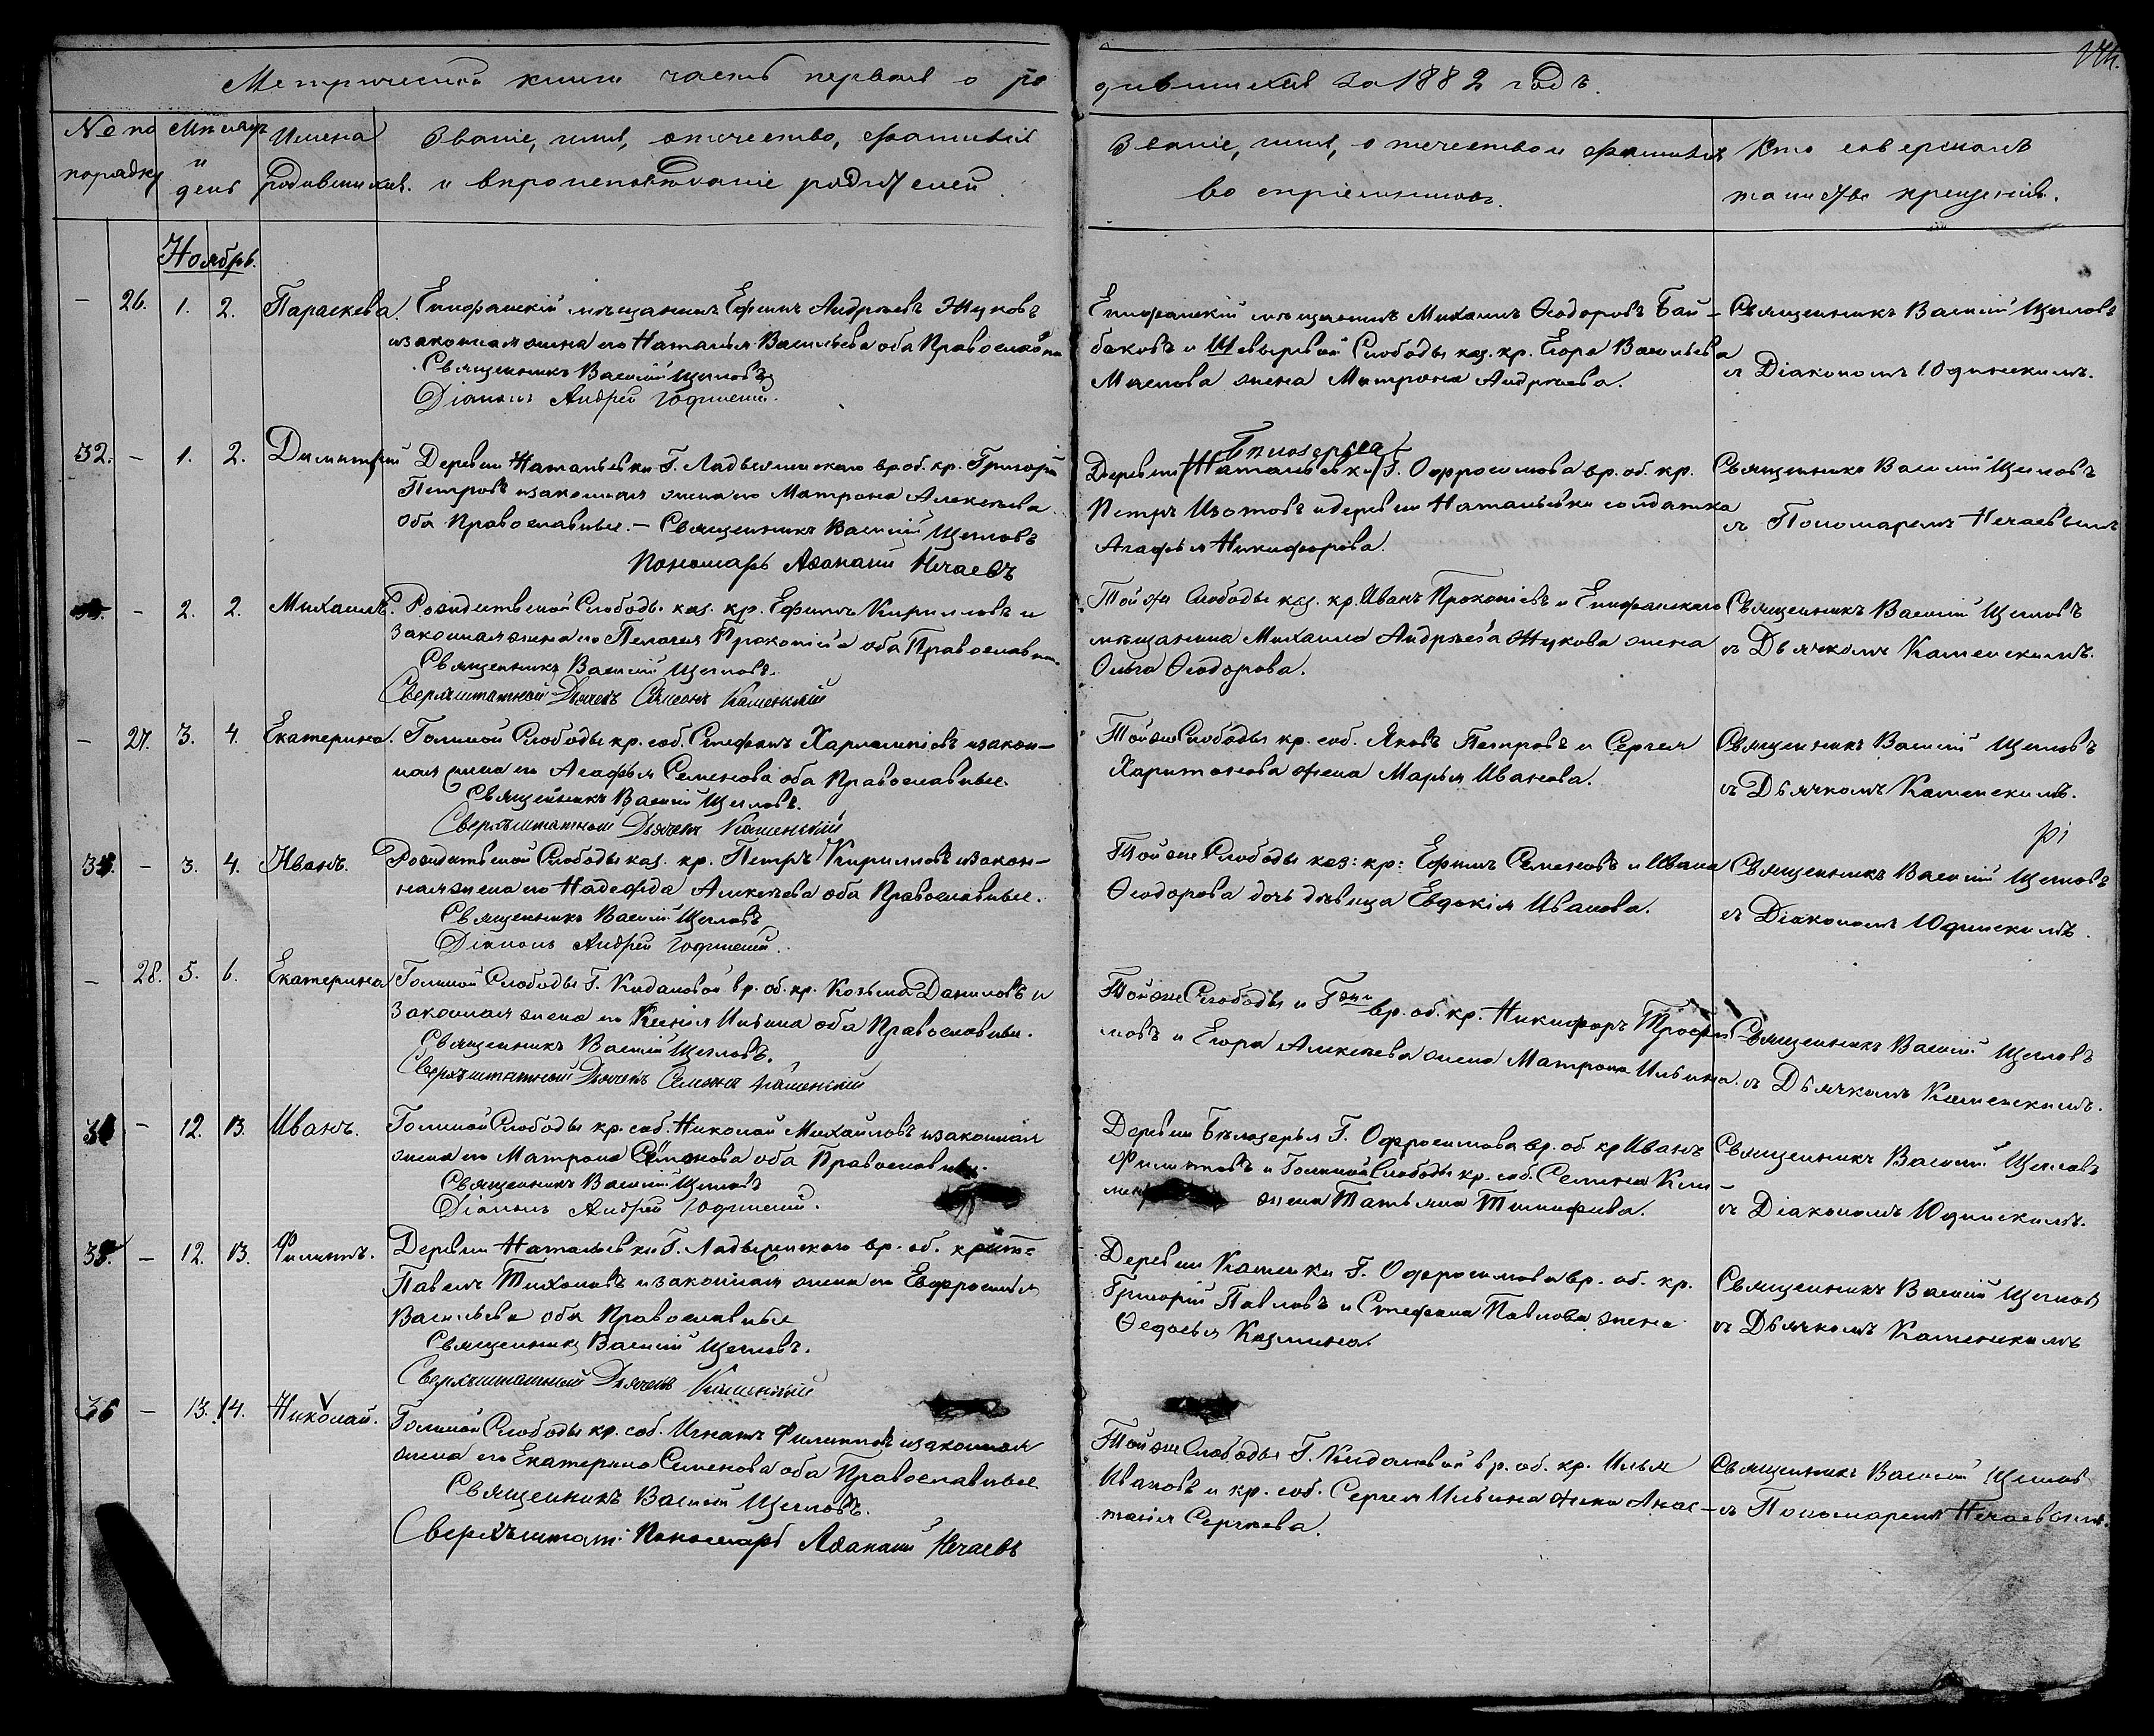 Метрической книги часть первая о ро
дившихся за 1882 годъ.
№ по порядку
Мѣсяцъ и день
Имена родившихся.
Званіе, имя, отчество, фамилія
и вѣроисповѣданіе родителей.
Званіе, имя, отчество и фамилія
воспріемниковъ.
Кто совершалъ
таинство крещенія.
Ноябрь.
— 26. 1. 2. Параскева.
Епифанскій мѣщанинъ Ефимъ Андреевъ Жуковъ
и законная жена его Наталья Васильева оба Православные
Священникъ Василій Щегловъ
Діаконъ Андрей Юдинскій.
Епифанскій мѣщанинъ Михаилъ Ѳеодоровъ Бай-
баковъ и Шевыревой Слободы каз. кр. Егора Васильева
Маслова жена Матрона Андреева.
Священникъ Василій Щегловъ
съ Діакономъ Юдинскимъ.
32. — 1. 2. Димитрій
Деревни Натальевки Г. Ладыженскаго вр. об. кр. Григорій
Петровъ и законная жена его Матрона Алексѣева
оба Православные. — Священникъ Василій Щегловъ
Пономарь Аѳанасій Нечаевъ
Бѣлозерья
Деревни (Натальевки) Г. Офросимова вр. об. кр.
Петръ Изотовъ и деревни Натальевки солдатка
Агафья Никифорова.
Священникъ Василій Щегловъ
съ Пономаремъ Нечаевымъ
— 2. 2. Михаилъ.
Рождественой Слободы каз. кр. Ефимъ Кирилловъ и
законная жена его Пелагея Прокопіева оба Православные.
Священникъ Василій Щегловъ.
Сверхштатной Дьячекъ Симеонъ Каменскій
Той же Слободы каз. кр. Иванъ Прокопіевъ и Епифанскаго
мѣщанина Михаила Андреева Жукова жена
Ольга Ѳеодорова.
Священникъ Василій Щегловъ
съ Дьячкомъ Каменскимъ.
— 27. 3. 4. Екатерина.
Голиной Слободы кр. соб. Стефанъ Харлампіевъ и закон-
ная жена его Агафья Семенова оба Православные.
Священникъ Василій Щегловъ.
Сверхъштатной Дьячекъ Каменскій
Той же Слободы кр. соб. Яковъ Петровъ и Сергея
Харитонова жена Марья Иванова.
Священникъ Василій Щегловъ
съ Дьячкомъ Каменскимъ.
— 3. 4. Иванъ.
Рождественой Слободы каз. кр. Петръ Кирилловъ и закон-
ная жена его Надежда Алексѣева оба Православные.
Священникъ Василій Щегловъ
Діаконъ Андрей Юдинскій.
Той же Слободы каз: кр: Ефимъ Семеновъ и Ивана
Ѳеодорова дочь дѣвица Евдокія Иванова.
Священникъ Василій Щегловъ
съ Діакономъ Юдинскимъ.
— 28. 5. 6. Екатерина
Голиной Слободы Г. Кидановой вр. об. кр. Козьма Даниловъ и
законная жена его Ксенія Ильина оба Православные.
Священникъ Василій Щегловъ.
Сверхъштатной Дьячекъ Семіонъ Каменскій
Той же Слободы и Гжи вр. об. кр. Никифоръ Трофи-
мовъ и Егора Алексѣева жена Матрона Ильина.
Священникъ Василій Щегловъ
съ Дьячкомъ Каменскимъ.
— 12. 13. Иванъ.
Голиной Слободы кр. соб. Николай Михайловъ и законная
жена его Матрона Семенова оба Православные.
Священникъ Василій Щегловъ
Діаконъ Андрей Юдинскій.
Деревни Бѣлозерья Г. Офросимова вр. об. кр Иванъ
Филиповъ и Голиной Слободы кр. соб. Семена Кли-
жена Татьяна Тимофеева.
Священникъ Василій Щегловъ
съ Діакономъ Юдинскимъ.
35. — 12. 13. Филиппъ.
Деревни Натальевки Г. Ладыженскаго вр. об. крест=
Павелъ Тихоновъ и законная жена его Евфросинья
Васильева оба Православные
Священникъ Василій Щегловъ.
Сверхъштатный Дьячекъ Каменскій
Деревни Каменки Г. Офросимова вр. об. кр.
Григорій Павловъ и Стефана Павлова жена
Ѳедосья Казмина.
Священникъ Василій Щегловъ
съ Дьячкомъ Каменскимъ
36 — 13. 14. Николай.
Голиной Слободы кр. соб. Игнатъ Филипповъ и законная
жена его Екатерина Семенова оба Православные
Священникъ Василій Щегловъ.
Сверхъштат: Пономарь Аѳанасій Нечаевъ
Той же Слободы Г. Кидановой вр. об. кр. Илья
Ивановъ и кр. соб. Сергея Ильина жена Анас-
тасія Сергѣева.
Священникъ Василій Щегловъ
съ Пономаремъ Нечаевымъ.